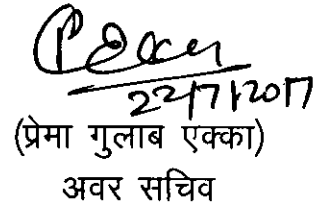 22/7/2017
(प्रेमा गुलाब एक्का)
अवर सचिव